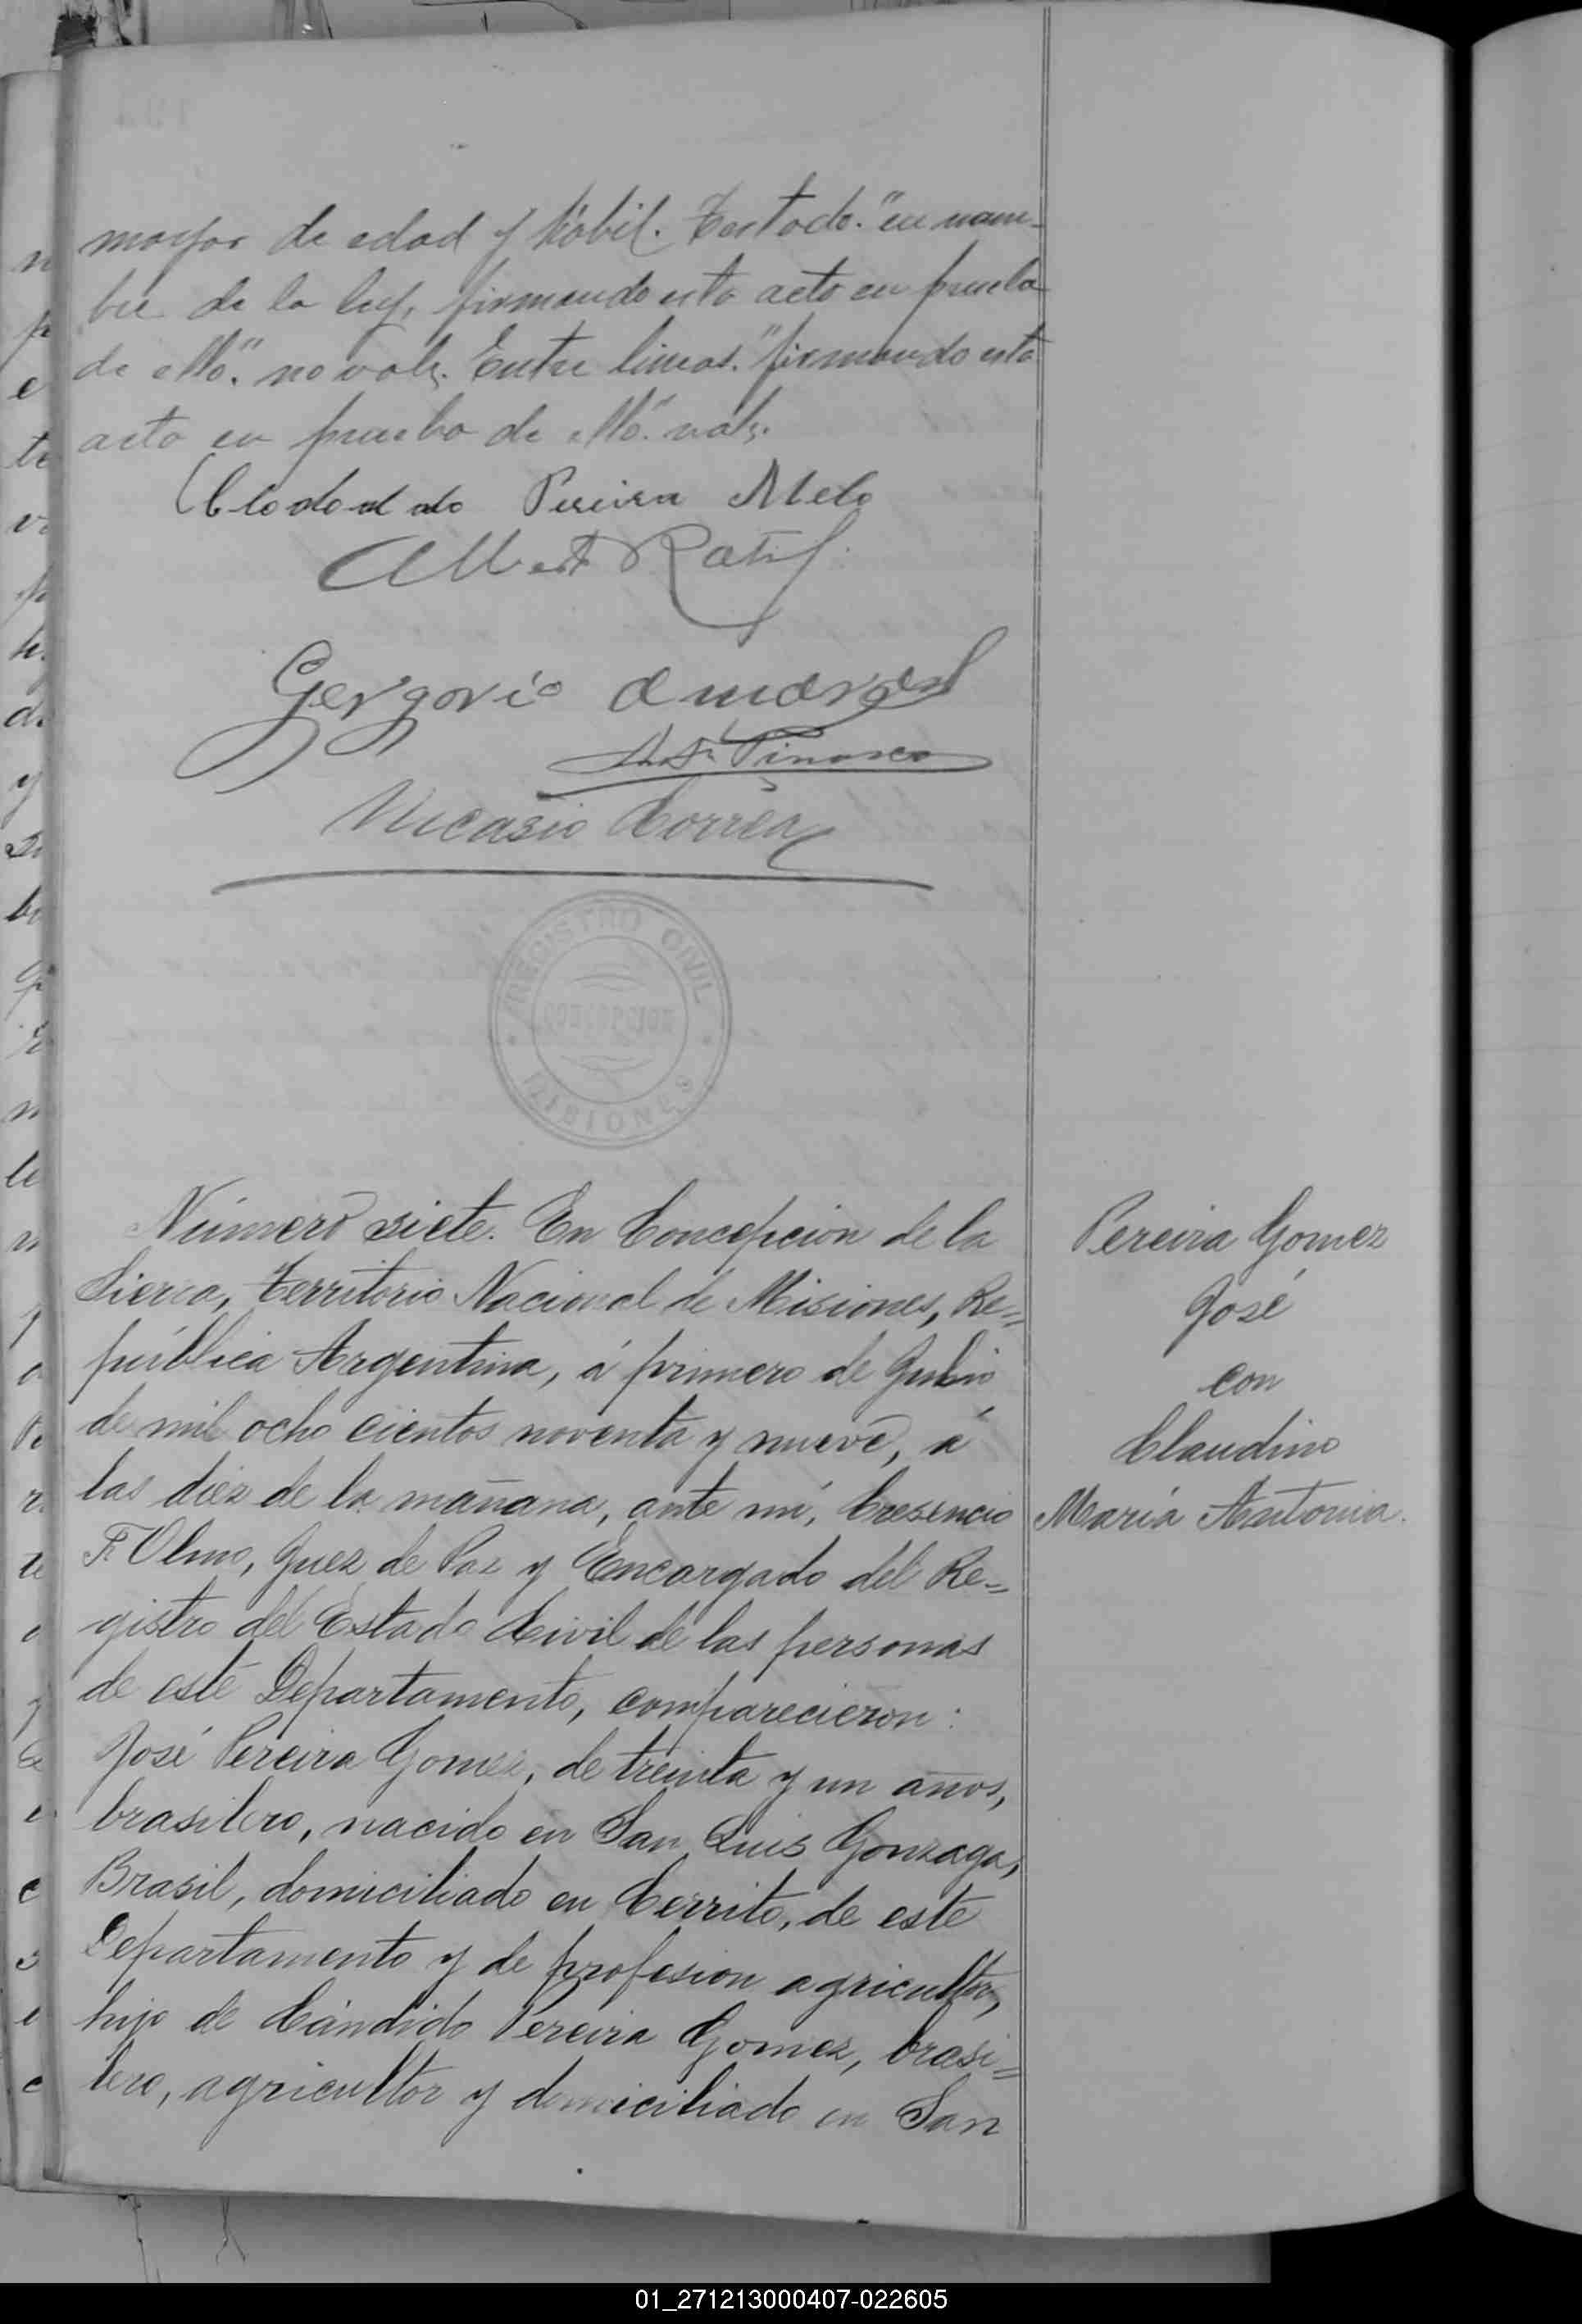 mayor de edad y hábil. Testado. "en nom-
bre de la ley, firmando esta acta en prueba
de ello". no vale. Entre lineas. "firmando esta
acta en prueba de ello". vale.
Clodoaldo Pereira Melo
Gergorio Amaral
Pinasco
Nicasio Correa
REGISTRO CIVIL
CONCEPCION
MISIONES
Número siete. En Concepcion de la
Sierra, Territorio Nacional de Misiones, Re=
pública Argentina, á primero de Julio
de mil ocho cientos noventa y nueve, á
las diez de la mañana, ante mí, Cresencio
F. Olmo, Juez de Paz y Encargado del Re=
gistro del Estado Civil de las personas
de este Departamento, comparecieron:
José Pereira Gomez, de treinta y un años,
brasilero, nacido en San Luis Gonzaga,
Brasil, domiciliado en Cerrito, de este
Departamento y de profesion agricultor,
hijo de Cándido Pereira Gomez, brasi=
lero, agricultor y domiciliado en San
Pereira Gomez
José
con
Claudino
María Antonia.
01_271213000407-022605